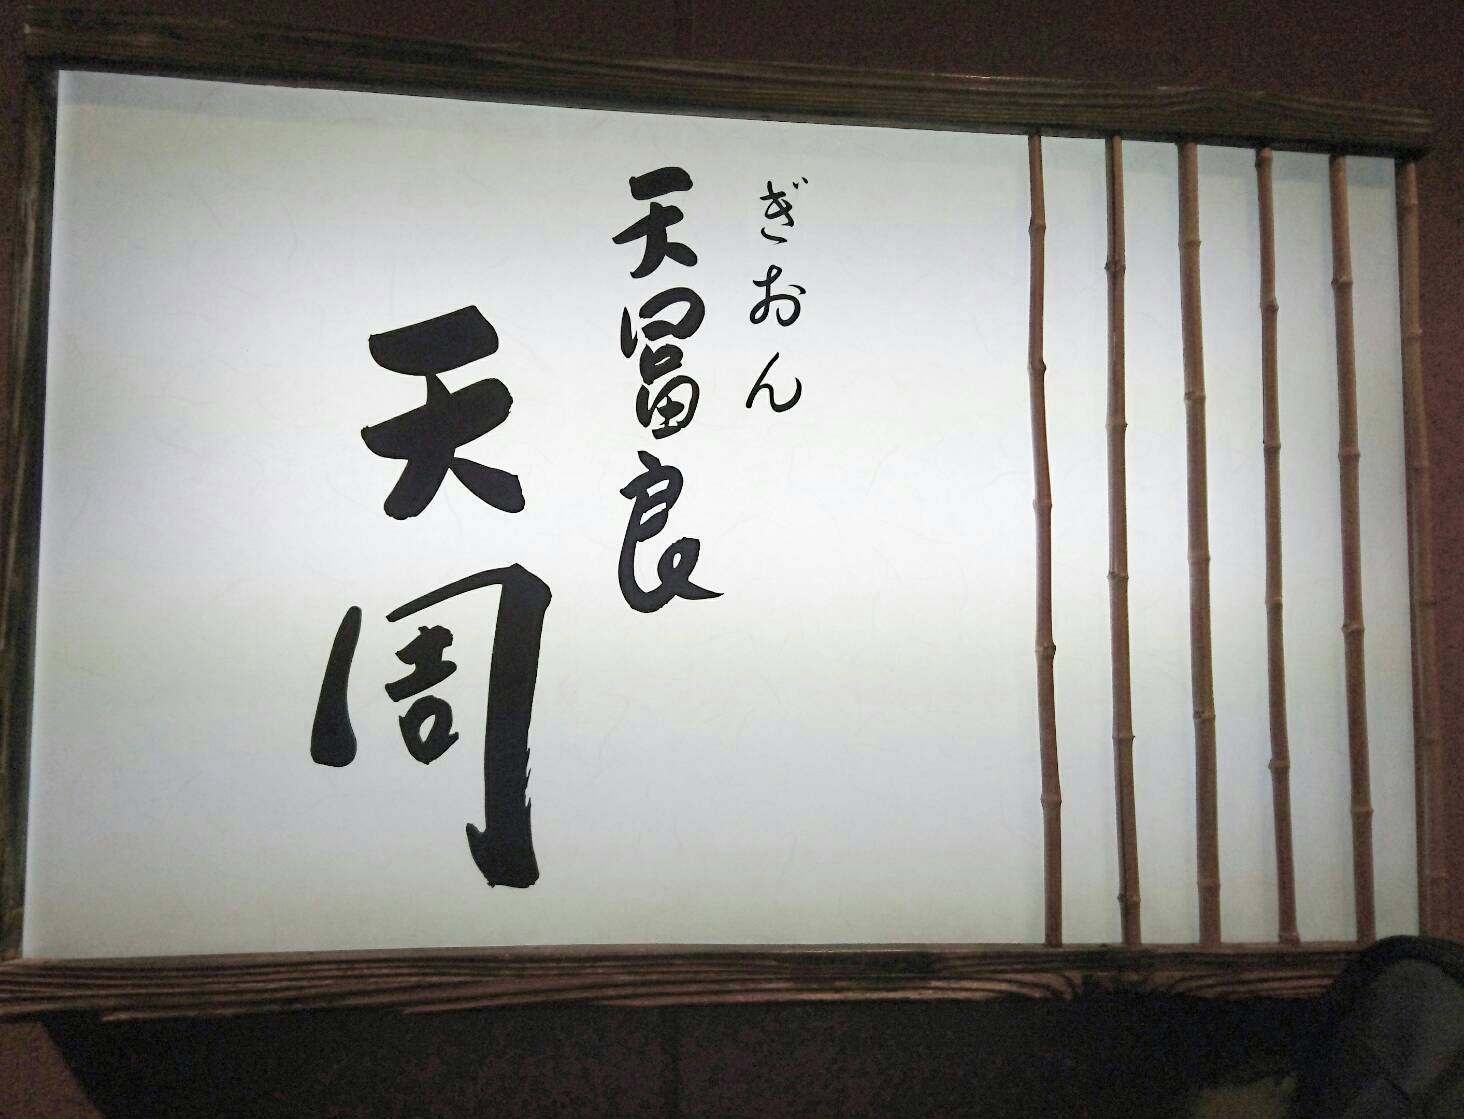 ぎおん
天冨良
天周